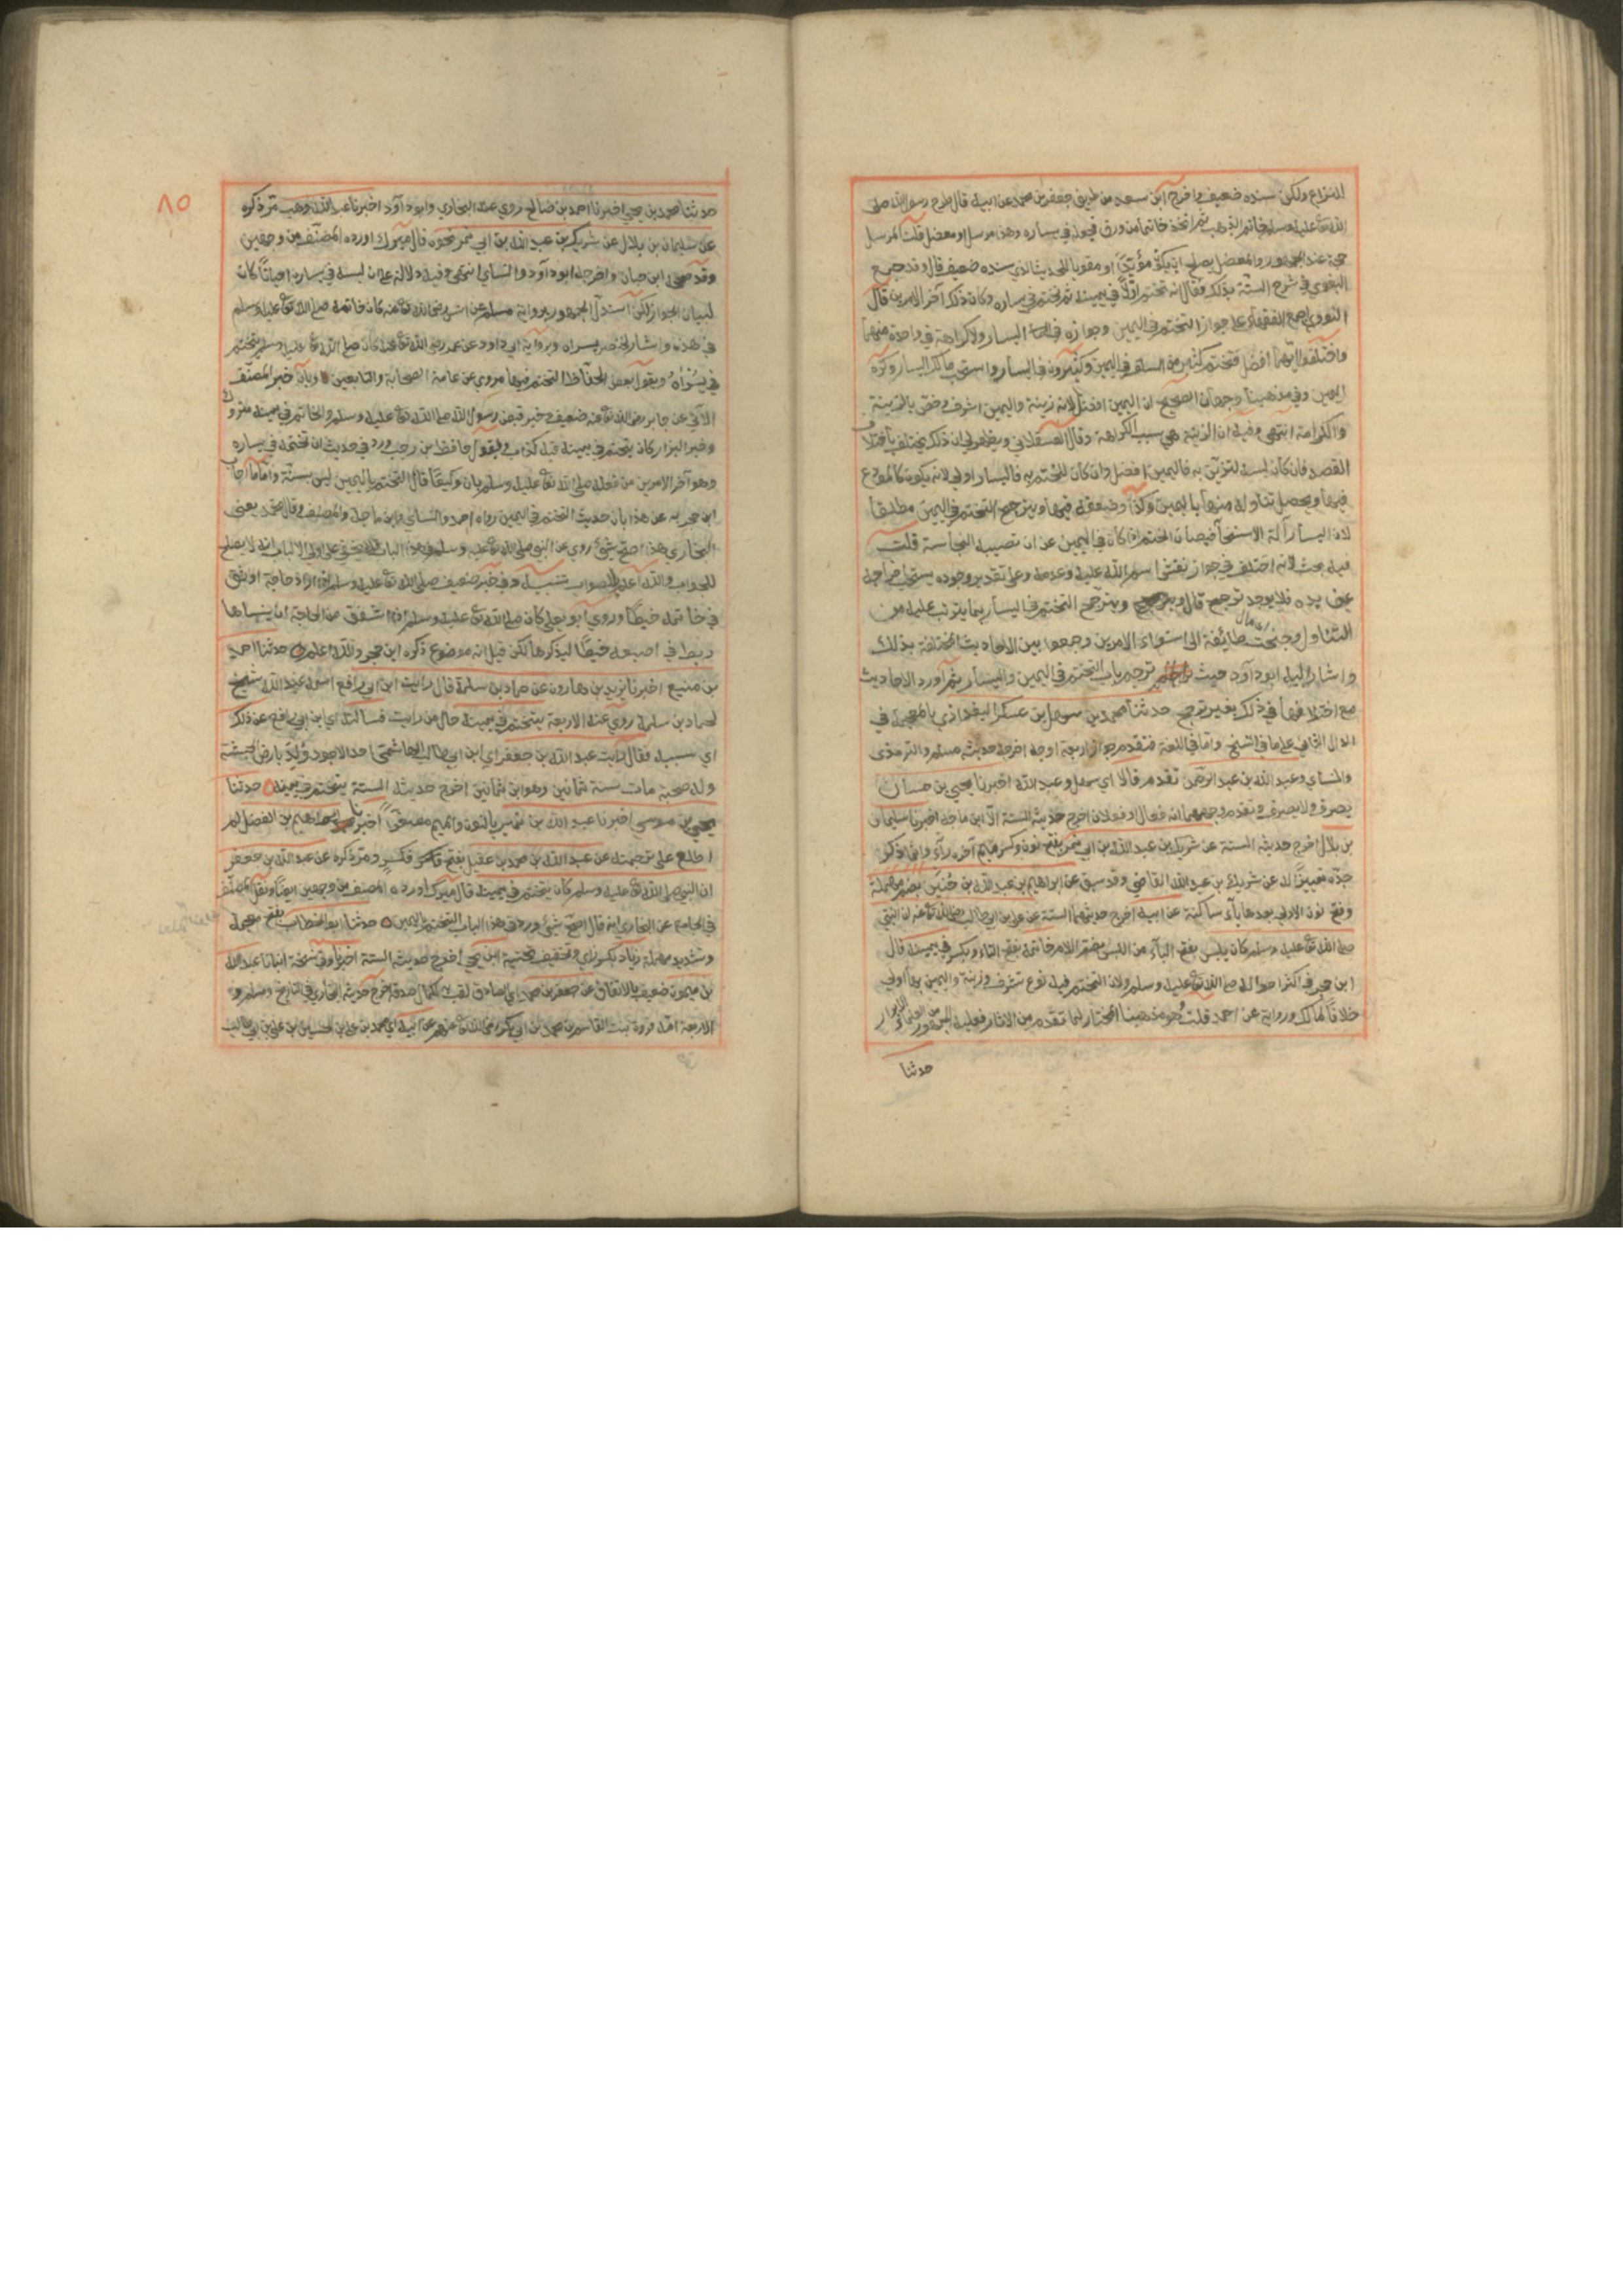 النزاع ولكن سنده ضعيف واخرج ابن سعد من طريق جعفر بن محمد عن ابيه قال طرح رسول الله صلى
الله تع عليه وسلم خاتم الذهب ثم اتخذ خاتما من ورق فجعله في يساره وهذا مرسل او معضل قلت المرسل
حجة عند الجمهور والمعضل يصلح ان يكون مؤيدا او مقويا للحديث الذي سنده ضعيف قال وقد جمع
البغوي في شرح السنة بذلك فقال انه تختم اولا في يمينه ثم تختم في يساره وكان ذلك آخر الامرين قال
النووي اجمع الفقهاء على جواز التختم في اليمين وجوازه في اليسار ولا كراهة في واحدة منهما
واختلفوا ايتهما افضل فتختم كثير من السلف في اليمين وكثيرون في اليسار واستحب مالك اليسار وكره
اليمين وفي مذهبنا وجهان الصحيح ان اليمين افضل لانه زينة واليمين اشرف واحق بالزينة
والكرامة انتهى وفيه ان الزينة هي سبب الكراهة وقال العسقلاني ويظهر لي ان ذلك يختلف باختلاف
القصد فان كان لبسه لتزين به فاليمين افضل وان كان للتختم به فاليسار اولى لانه يكون كالمودع
فيها ويحصل تناوله منها باليمين وكذا وضعه فيها ويترجح التختم في اليمين مطلقا
لان اليسار آلة الاستنجاء فيصان الختم اذا كان في اليمين عن ان تصيبه النجاسة قلت
فيه بحث لانه اختلف في جواز نقش اسم الله عليه وعدمه وعلى تقدير وجوده يستحب اخراجه
عن يده فلا يوجد ترجيح قال ويترجح التختم في اليسار بما يترتب عليه من
التناول وجنحت اي مال طائفة الى استواء الامرين وجمعوا بين الاحاديث المختلفة بذلك
واشار اليه ابو داود حيث ترجم باب التختم في اليمين واليسار ثم اورد الاحاديث
مع اختلافها في ذلك بغير ترجيح حدثنا محمد بن سهل بن عسكر البغداذي بالمعجمة في
الدال الثاني على ما في النسخ واما في اللغة فتقدم جواز اربعة اوجه اخرج حديثه مسلم والترمذي
والنساي وعبد الله بن عبد الرحمن تقدم قالا اي سهل وعبد الله اخبرنا يحيى بن حسان
يصرف ولا يصرف وتقدم وجههما انه فعال او فعلان اخرج حديثه الستة الا ابن ماجة اخبرنا سليمان
بن بلال اخرج حديثه الستة عن شريك بن عبد الله بن ابي نمر بفتح نون وكسر ميم آخره راء وانما ذكر
جده تمييزا له عن شريك بن عبد الله القاضي وقد سبق عن ابراهيم بن عبد الله بن حنين بضم مهملة
وفتح نون الاولى بعدها ياء ساكنة عن ابيه اخرج حديثهما الستة عن علي بن ابي طالب رضي الله تع عنه ان النبي
صلى الله تع عليه وسلم كان يلبس بفتح الباء من اللبس بضم اللام خاتمه بفتح التاء وبكسر في يمينه قال
ابن حجر في اكثر احواله صلى الله تع عليه وسلم ولان التختم فيه نوع تشرف وزينة واليمين بها اولى
خلافا لمالك ورواية عن احمد قلت هو مذهبنا المختار لما تقدم من الآثار فعليه الجمهور من العلماء
حدثنا
٨٥
حدثنا محمد بن يحيى اخبرنا احمد بن صالح روي عنه البخاري وابو داود اخبرنا عبد الله بن وهب مر ذكره
عن سليمان بن بلال عن شريك بن عبد الله بن ابي نمر نحوه قال ميرك اورده المصنف من وجهين
وقد صححه ابن حبان واخرجه ابو داود والنساي انتهى وفيه دلالة على ان لبسه في يساره احيانا كان
لبيان الجواز لكن استدل الجمهور برواية مسلم عن انس رضي الله تع عنه كان خاتمه صلى الله تع عليه وسلم
في هذه واشار لخنصر يسراه وبرواية ابي داود عن عمر رضي الله تع عنه كان صلى الله تع عليه وسلم يتختم
في يسراه وبقول بعض الحفاظ التختم فيها مروي عن عامة الصحابة والتابعين وبان خبر المصنف
الآتي عن جابر رضي الله تع عنه ضعيف وخبر قبض رسول الله صلى الله تع عليه وسلم والخاتم في يمينه متروك
وخبر البزار كان يتختم في يمينه فيه كذاب وبقول حافظ ابن رجب ورد في حديث ان تختمه في يساره
وهو آخر الامرين من فعله صلى الله تع عليه وسلم بان وكيعا قال التختم باليمين ليس بسنة واما ما اجاب
ابن حجر به عن هذا بان حديث التختم في اليمين رواه احمد والنساي وابن ماجه والمصنف وقال محمد يعني
البخاري هذا اصح شئ روي عن النبي صلى الله تع عليه وسلم في هذا الباب فلا يخفى على اولي الالباب انه لا يصلح
للجواب والله اعلم بالصواب تنبيه وفي خبر ضعيف صلى الله تع عليه وسلم اذا اراد حاجة اوثق
في خاتمه خيطا وروي ابو يعلى كان صلى الله تع عليه وسلم اذا اشفق من الحاجة ان ينساها
ربط في اصبعه خيطا ليذكرها لكن قيل انه موضوع ذكره ابن حجر والله اعلم حدثنا احمد
بن منيع اخبرنا يزيد بن هارون عن حماد بن سلمة قال رايت ابن ابي رافع اسمه عبد الله شيخ
لحماد بن سلمة روي عنه الاربعة يتختم في يمينه حال من رايت فسالته اي ابن ابي رافع عن ذلك
اي سببه فقال رايت عبد الله بن جعفر اي ابن ابي طالب الهاشمي احد الاجود ولد بارض الحبشة
وله صحبة مات سنة ثمانين وهو ابن ثمانين اخرج حديثه الستة يتختم في يمينه حدثنا
يحيى بن موسى اخبرنا عبد الله بن نمير بالنون والميم مصغرا اخبرنا ابراهيم بن الفضل لم
اطلع على ترجمته عن عبد الله بن محمد بن عقيل بفتح فكسر ومر ذكره عن عبد الله بن جعفر
ان النبي صلى الله تع عليه وسلم كان يتختم في يمينه قال ميرك اورده المصنف من وجهين ايضا ونقل المصنف
في الجامع عن البخاري انه قال اصح شئ ورد في هذا الباب التختم باليمين حدثنا ابو الخطاب بفتح معجمة
وتشديد مهملة زياد بكسر زاي وتخفيف تحتية ابن يحيى اخرج حديثه الستة اخبرنا وفي نسخة انبانا عبد الله
بن ميمون ضعيف بالاتفاق عن جعفر بن محمد اي الصادق لقب به لكمال صدقه اخرج حديثه البخاري في التاريخ ومسلم و
الاربعة امه فروة بنت القاسم بن محمد بن ابي بكر رضي الله تع عنهم عن ابيه اي محمد بن علي بن الحسين بن علي بن ابي طالب